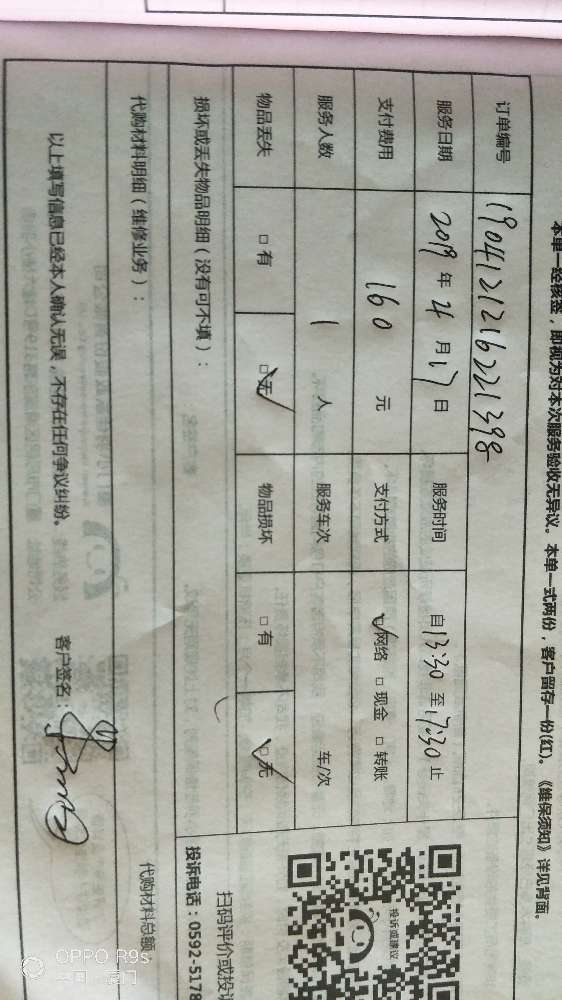 本单一经核签，即视为对本次服务验收无异议。本单一式两份，客户留存一份(红)。《维保须知》详见背面。
订单编号 19041212162221398
服务日期 2019 年 4 月 17 日 服务时间 自 13:30 至 17:30 止
支付费用 160 元 支付方式 ☑网络 □现金 □转账
服务人数 1 人 服务车次 车/次
物品丢失 □有 ☑无 物品损坏 □有 ☑无
损坏或丢失物品明细（没有可不填）：
代购材料明细（维修业务）：
代购材料总额
以上填写信息已经本人确认无误，不存在任何争议纠纷。 客户签名：
投诉或建议
扫码评价或投诉
投诉电话：0592-5178
OPPO R9s